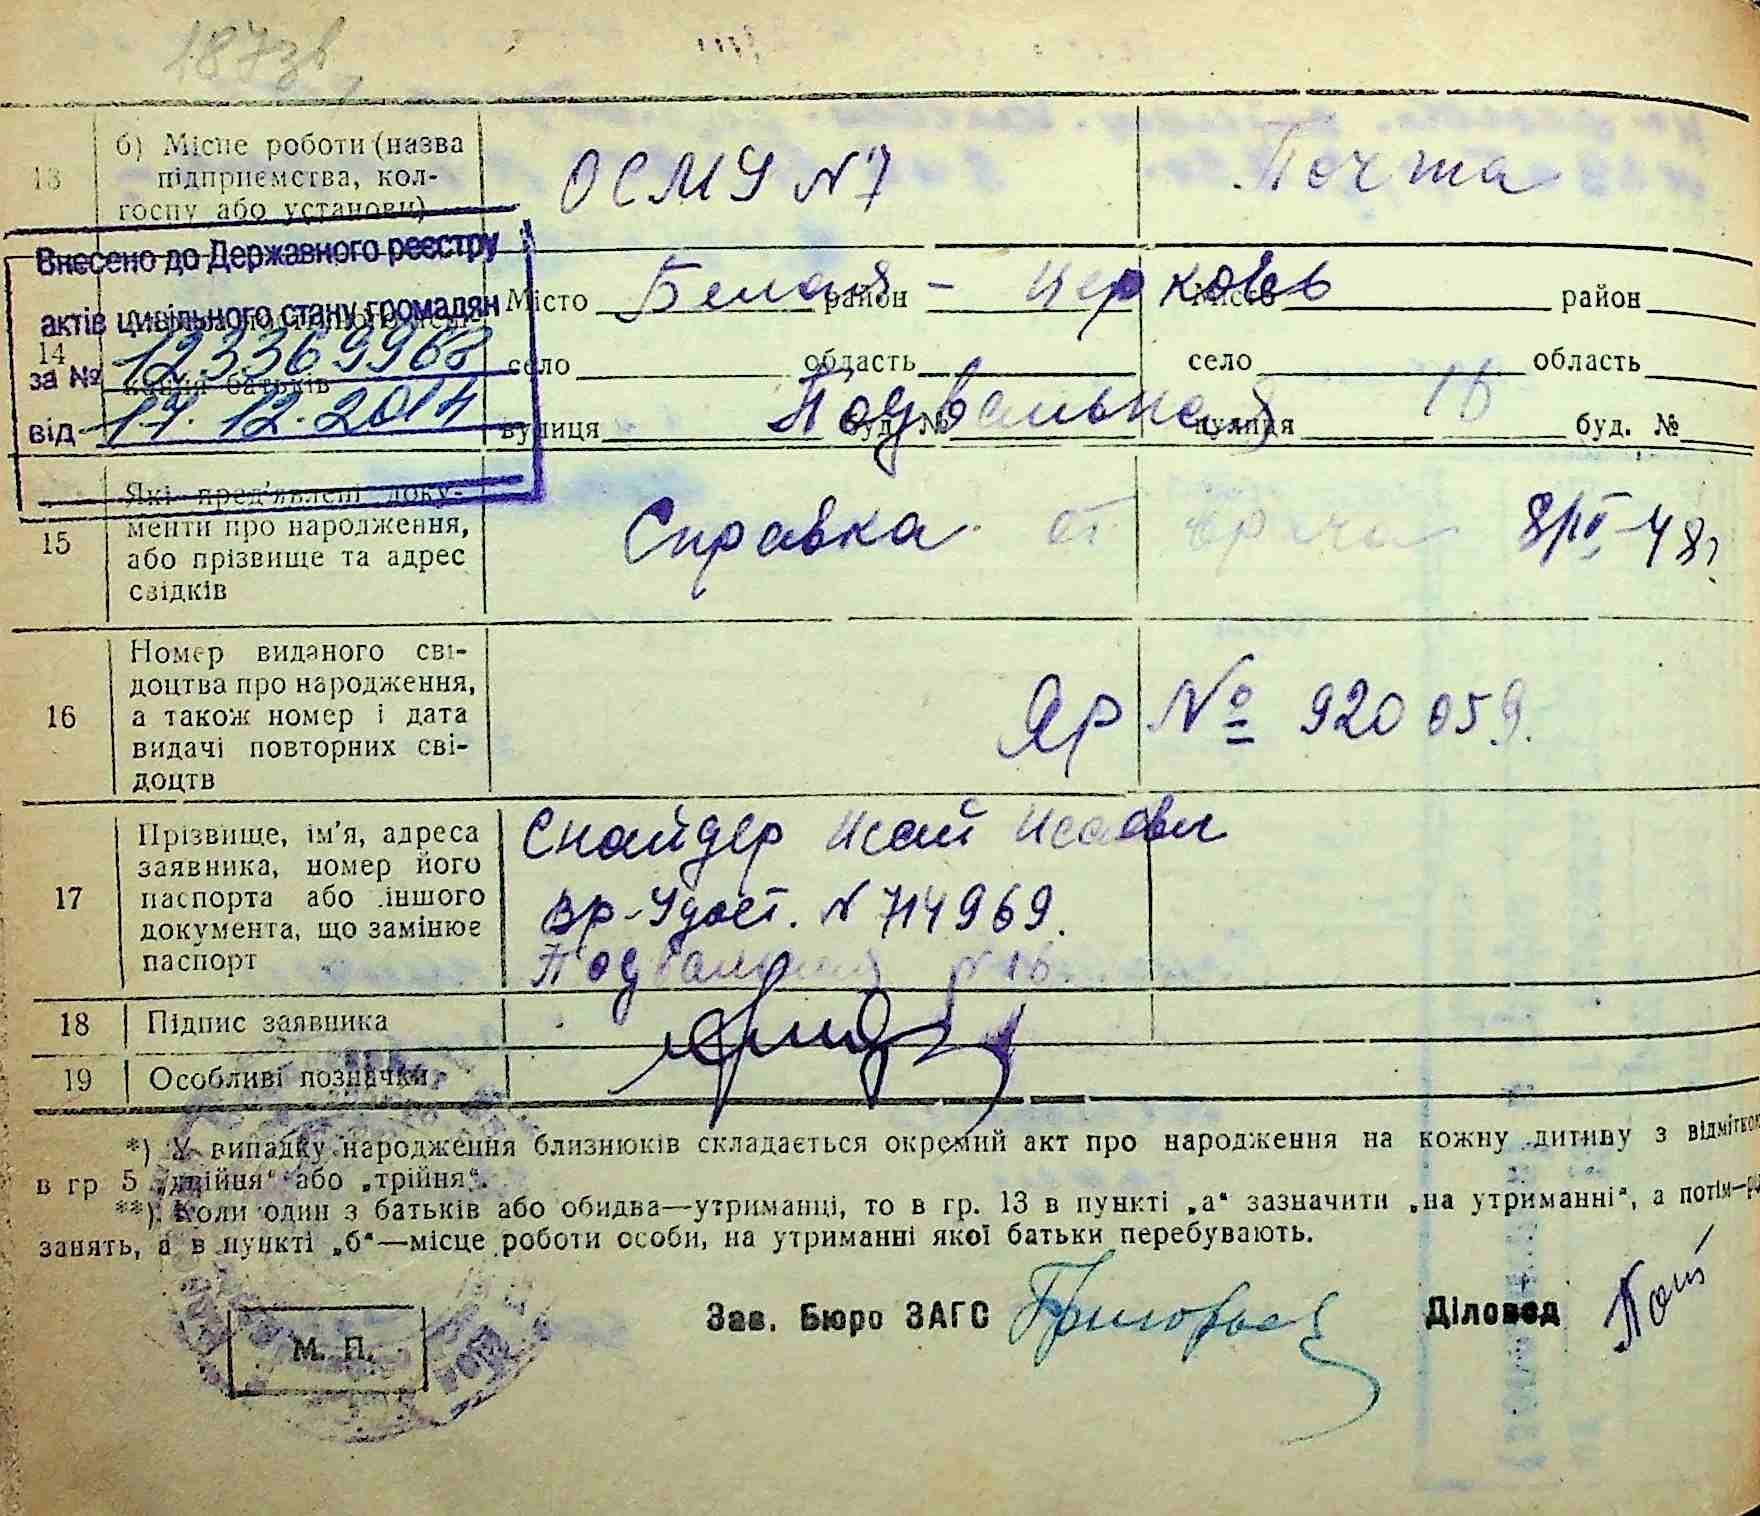 187зв
13
б) Місце роботи (назва
підприємства, кол-
госпу або установи)
ОСМУ N7
Почта
Внесено до Державного реєстру
актів цивільного стану громадян
за № 12336 9968
від 17.12.2014
14
кання батьків
Місто Белая район - Церковь Місто район
село область село область
вулиця Подвальная буд. № вулиця 16 буд. №
15
Які пред'явлені доку-
менти про народження,
або прізвище та адрес
свідків
Справка от врача 8/III-48г.
16
Номер виданого сві-
доцтва про народження,
а також номер і дата
видачі повторних сві-
доцтв
ЯР № 920059.
17
Прізвище, ім'я, адреса
заявника, номер його
паспорта або іншого
документа, що замінює
паспорт
Снайдер Исай Исаови
вр-Удост. N 714969.
Подвальная N 16.
18 Підпис заявника
19 Особливі позначки
*) У випадку народження близнюків складається окремий акт про народження на кожну дитину з відміткою
в гр 5 „двійня“ або „трійня“.
**) Коли один з батьків або обидва—утриманці, то в гр. 13 в пункті „а“ зазначити „на утриманні“, а потім—
занять, а в пункті „б“—місце роботи особи, на утриманні якої батьки перебувають.
М. П.
Зав. Бюро ЗАГС
Діловод